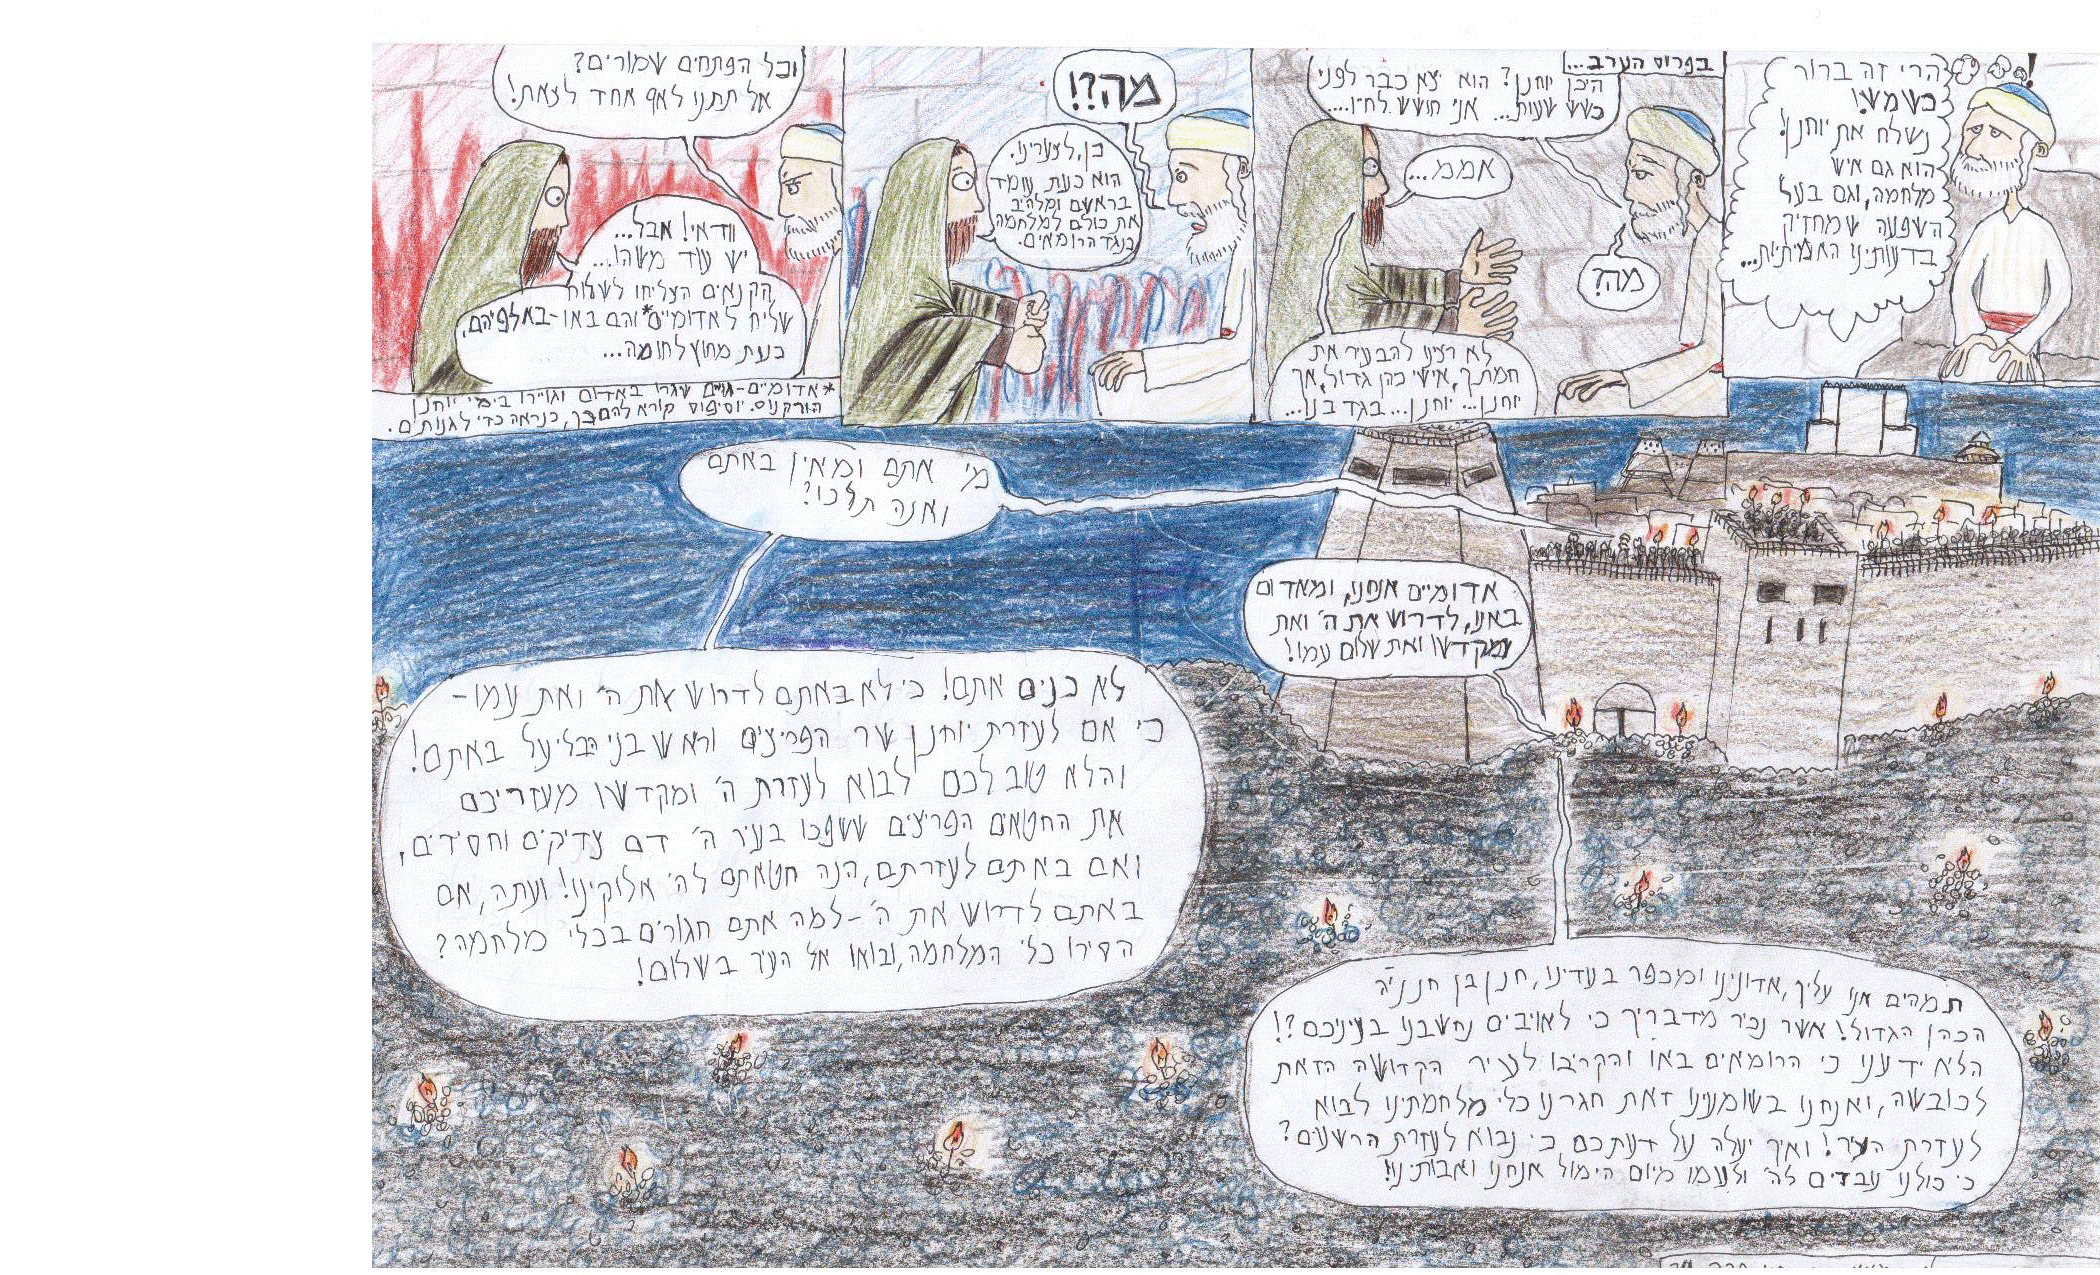 הרי זה ברור
כשמש!
נשלח את יוחנן!
הוא גם איש
מלחמה, וגם בעל
השפעה שמחזיק
בדעותינו האמיתיות...
!
בפרוס הערב...
היכן יוחנן? הוא יצא כבר לפני
כשש שעות... אני חושש לחייו....
אממ...
מה?
לא רצינו להבעיר את
חמתך, אישי כהן גדול, אך
יוחנן... יוחנן... בגד בנו...
מה?!
כן, לצערינו.
הוא כעת עומד
בראשם ומלהיב
את כולם למלחמה
כנגד הרומאים.
וכל הפתחים שמורים?
אל תתנו לאף אחד לצאת!
וודאי! אבל...
יש עוד משהו...
הקנאים הצליחו לשלוח
שליח לאדומיים* והם באו-באלפיהם,
כעת מחוץ לחומה...
*אדומיים-גויים שגרו באדום וגויירו בימי יוחנן
הורקנוס. יוסיפוס קורא להם כך, כנראה כדי לגנותים.
מי אתם ומאין באתם
ואנה תלכו?
אדומיים אנחנו, ומאדום
באנו, לדרוש את ה' ואת
מקדשו ואת שלום עמו!
לא כנים אתם! כי לא באתם לדרוש את ה' ואת עמו-
כי אם לעזרת יוחנן שר הפריצים וראש בני הבליעל באתם!
והלא טוב לכם לבוא לעזרת ה' ומקדשו מעזריכם
את החטאים הפריצים ששפכו בעיר ה' דם צדיקים וחסידים,
ואם באתם לעזרתם, הנה חטאתם לה' אלוקינו! ועתה, אם
באתם לדרוש את ה'-למה אתם חגורים בכלי מלחמה?
הסירו כלי המלחמה, ובואו אל העיר בשלום!
תמהים אנו עליך, אדונינו ומכפר בעדינו, חנן בן חנניה
הכהן הגדול! אשר נכיר מדבריך כי לאויבים נחשבנו בעיניכם?!
הלא ידענו כי הרומאים באו והקריבו לעיר הקדושה הזאת
לכובשה, ואנחנו בשומעינו זאת חגרנו כלי מלחמתינו לבוא
לעזרת העיר! ואיך יעלה על דעתכם כי נבוא לעזרת הרשעים?
כי כולנו עובדים לה' ולעמו מיום הימול אנחנו ואבותינו!